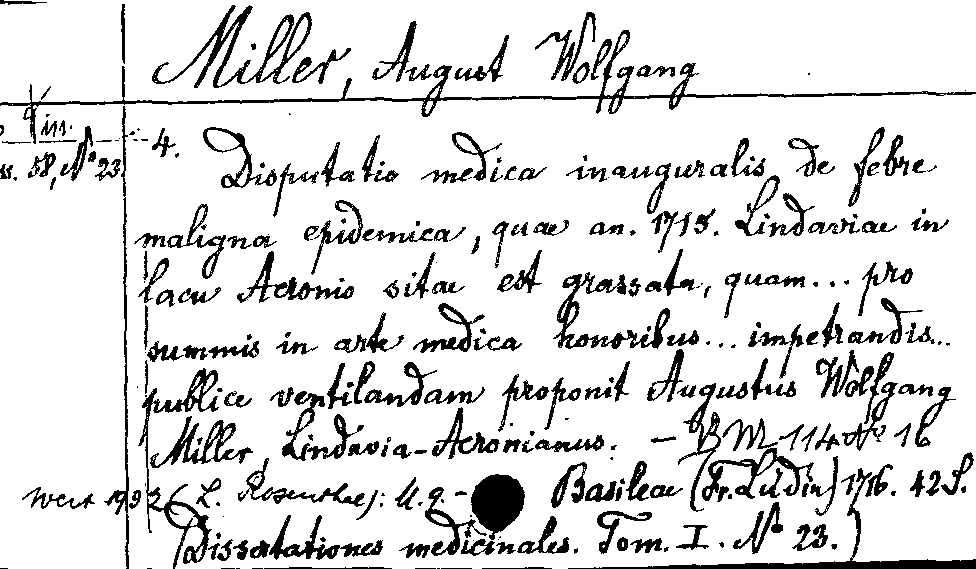 Miller, August Wolfgang
4°. in.
ss. 58, N° 23.
4.
Disputatio medica inauguralis de febre
maligna epidemica, quae an. 1715. Lindaviae in
lacu Acronio sitae est grassata, quam... pro
summis in arte medica honoribus... impetrandis...
publice ventilandam proponit Augustus Wolfgang
Miller, Lindavia-Acronianus. – BM 114 N° 16
1932 (L. Rosenthal): M. 9. – Basileae (Fr. Lüdin) 1716. 42 S.
(Dissertationes medicinales. Tom. I. N° 23.)